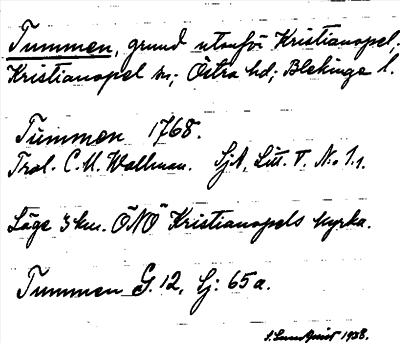 Tummen, grund utanför Kristianopel,
Kristianopel sn; Östra hd; Blekinge l.
Tummen 1768.
Trol. C. U. Wallman. SjA, Litt. V. No 1.
Läge 3 km. ÖNÖ Kristianopels kyrka.
Tummen G. 12, Sj: 65 a.
S. Lundquist 1938.